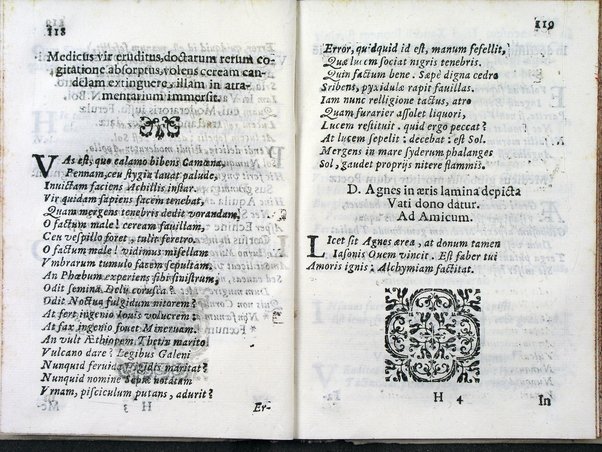 118
Medicus vir eruditus, doctarum rerum co-
gitatione absorptus, volens ceream can-
delam extinguere, illam in atra-
mentarium immersit.
VAs est, quo calamo bibens Camœna,
Pennam, ceu stygia lauat palude,
Inuictam faciens Achillis instar.
Vir quidam sapiens facem tenebat,
Quam mergens tenebris dedit vorandam,
O factum male! ceream fauillam,
Ceu vespillo foret, tulit feretro.
O factum male! vidimus misellam
Vmbrarum tumulo facem sepultam,
An Phœbum experiens sibi sinistrum,
Odit semina Delij corusca?
Odit Noctua fulgidum nitorem?
At fert ingenio Iouis volucrem:
At fax ingenio fouet Mineruam.
An vult Æthiopem Thetis marito
Vulcano dare? Legibus Galeni
Nunquid feruida frigidis maritat?
Nunquid nomine Sepiæ notatam
Vrnam, pisciculum putans, adurit?
H 3 Er-
119
Error, quidquid id est, manum fefellit,
Quæ lucem sociat nigris tenebris.
Quin factum bene. Sæpè digna cedro
Scribens, pyxidulæ rapit fauillas.
Iam nunc relligione tactus, atro
Quam furarier assolet liquori,
Lucem restituit. quid ergo peccat?
At lucem sepelit: decebat: est Sol.
Mergens in mare syderum phalanges
Sol, gaudet proprijs nitere flammis.
D. Agnes in æris lamina depicta
Vati dono datur.
Ad Amicum.
LIcet sit Agnes ærea, at donum tamen
Iasonis Ouem vincit. Est faber tui
Amoris ignis: Alchymiam factitat.
H 4 In